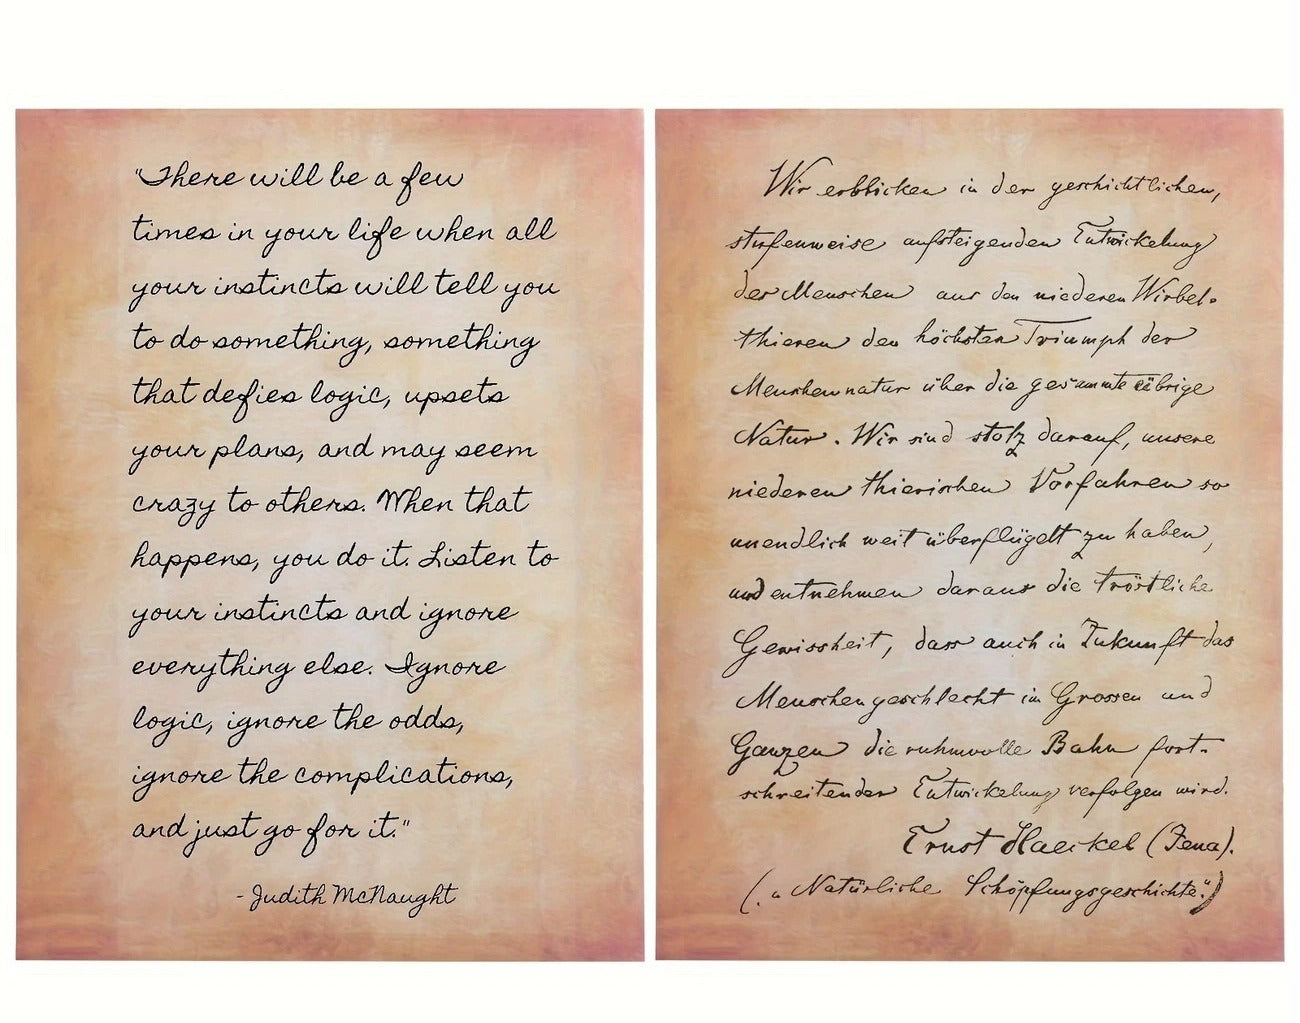 "There will be a few
times in your life when all
your instincts will tell you
to do something, something
that defies logic, upsets
your plans, and may seem
crazy to others. When that
happens, you do it. Listen to
your instincts and ignore
everything else. Ignore
logic, ignore the odds,
ignore the complications,
and just go for it."
- Judith McNaught
Wir erblicken in der geschichtlichen,
stufenweise aufsteigenden Entwickelung
des Menschen aus den niederen Wirbel-
thieren den höchsten Triumph der
Menschennatur über die gesammte übrige
Natur. Wir sind stolz darauf, unsere
niederen thierischen Vorfahren so
unendlich weit überflügelt zu haben,
und entnehmen daraus die tröstliche
Gewissheit, dass auch in Zukunft das
Menschengeschlecht im Grossen und
Ganzen die ruhmvolle Bahn fort-
schreitender Entwickelung verfolgen wird.
Ernst Haeckel (Jena).
(„Natürliche Schöpfungsgeschichte.“)